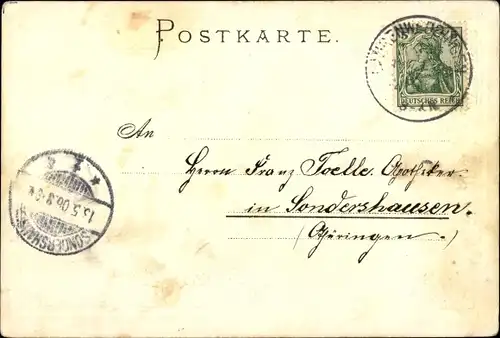 POSTKARTE.
DEUTSCHES REICH
An
Herrn Franz Toelle. Apotheker
in Sondershausen.
(Thüringen.)
SONDERSHAUSEN
13.5.06.